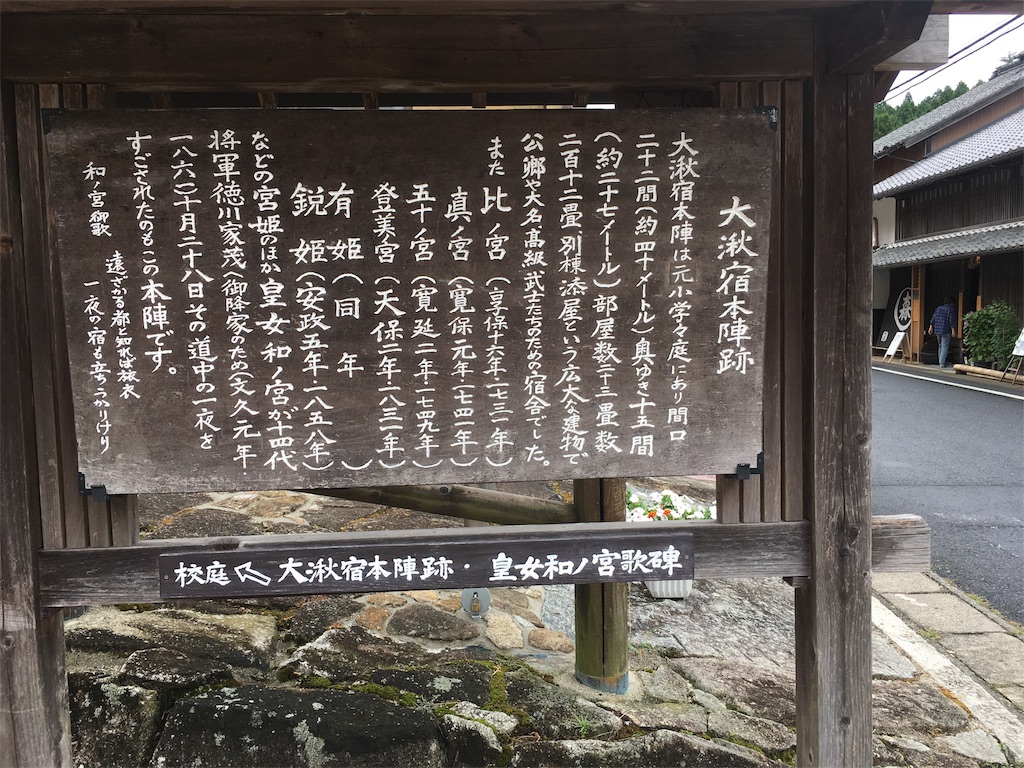 大湫宿本陣跡
大湫宿本陣は元小学々庭にあり間口
二十二間(約四十メートル)奥ゆき十五間
(約二十七メートル)部屋数二十三畳数
二百十二畳、別棟添屋という広大な建物で
公卿や大名高級武士たちのための宿舎でした。
また比ノ宮(享保十六年・一七三一年)
真ノ宮(寛保元年・一七四一年)
五十ノ宮(寛延二年・一七四九年)
登美ノ宮(天保二年・一八三一年)
有姫(同年)
鋭姫(安政五年・一八五八年)
などの宮姫のほか皇女和ノ宮が十四代
将軍徳川家茂へ御降家のため(文久元年
一八六一)十月二十八日その道中の一夜を
すごされたのもこの本陣です。
和ノ宮御歌
遠ざかる都と知れば旅衣
一夜の宿も立ちうかりけり
校庭 大湫宿本陣跡・皇女和ノ宮歌碑